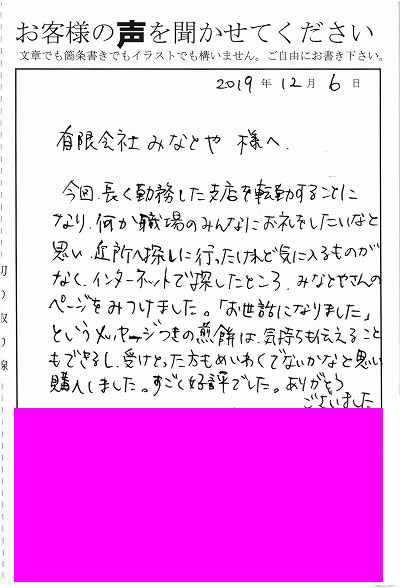 お客様の声を聞かせてください
文章でも箇条書きでもイラストでも構いません。ご自由にお書き下さい。
2019年12月6日
有限会社みなとや 様へ.
今回、長く勤務した支店を転勤することに
なり、何か職場のみんなにお礼をしたいなと
思い、近所へ探しに行ったけれど気に入るものが
なく、インターネットで探したところ、みなとやさんの
ページをみつけました。「お世話になりました」
というメッセージつきの煎餅は、気持ちも伝えること
もできるし、受けとった方もめいわくでないかなと思い
購入しました。すごく好評でした。ありがとう
ございました
切り取り線